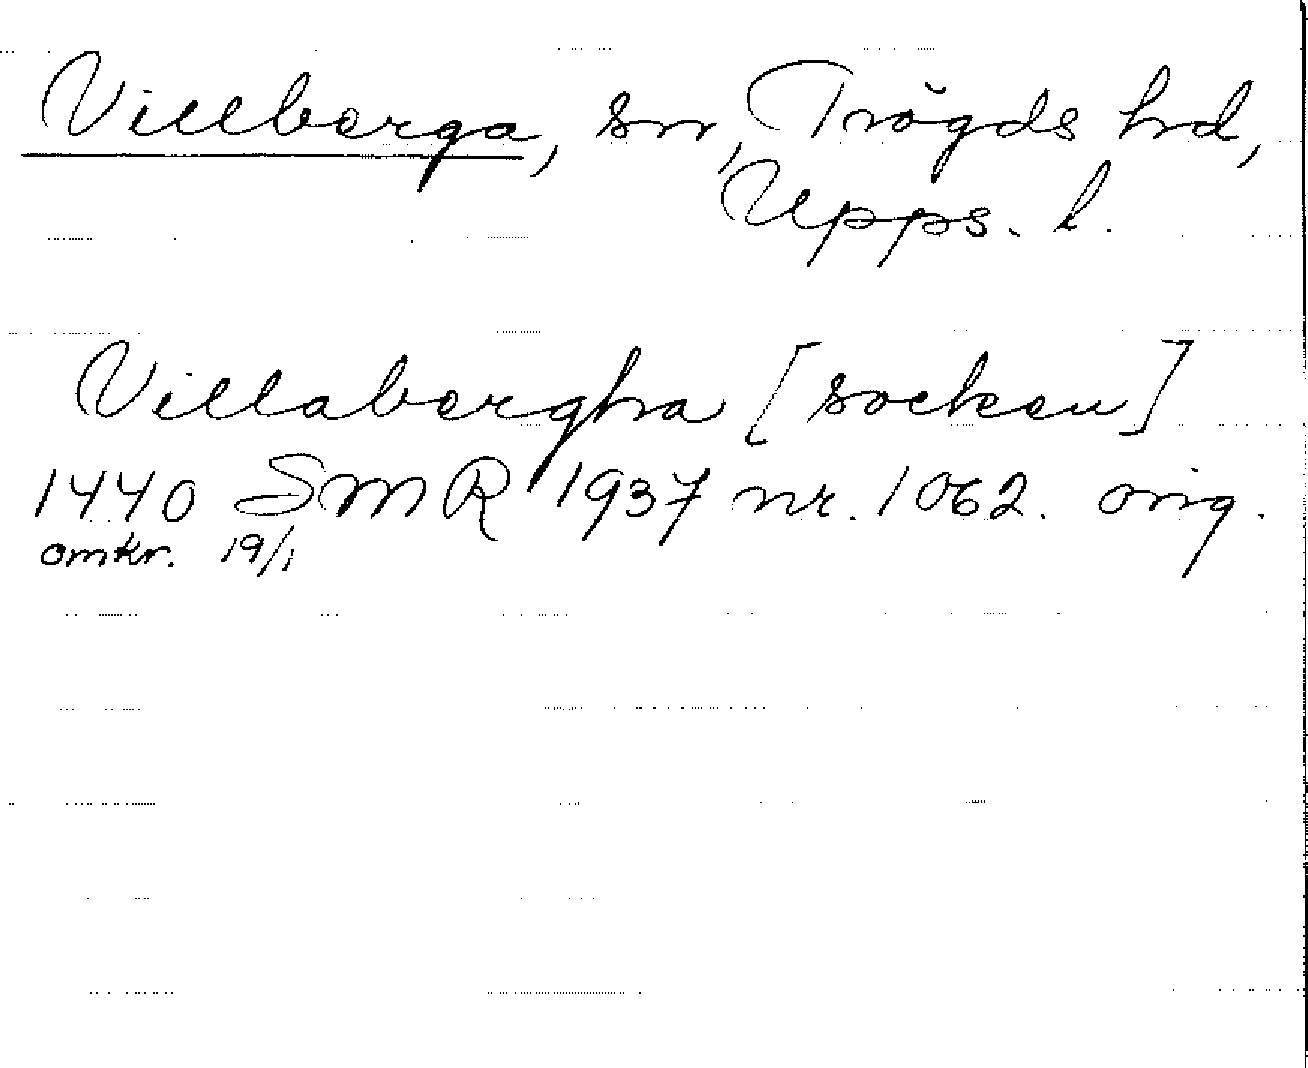 Villberga, sn, Trögds hd,
Upps. l.
Villabergha [socken]
1440 SMR 1937 nr. 1062. orig.
omkr. 19/1